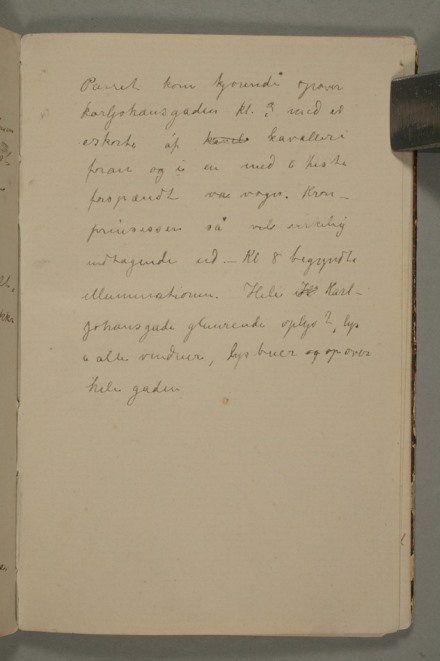 Parret kom kjørende opover
Karljohansgaden kl. 3 med et
eskorte af kavalleri
foran og i en med 6 heste
forspændt vogn. Kron-
prinsessen så vel
indtagende ud. – Kl 8 begyndte
illuminationen. Hele Karl-
johansgade glimrende oplyst, lys
i alle vinduer, lys buer og opover
hele gaden